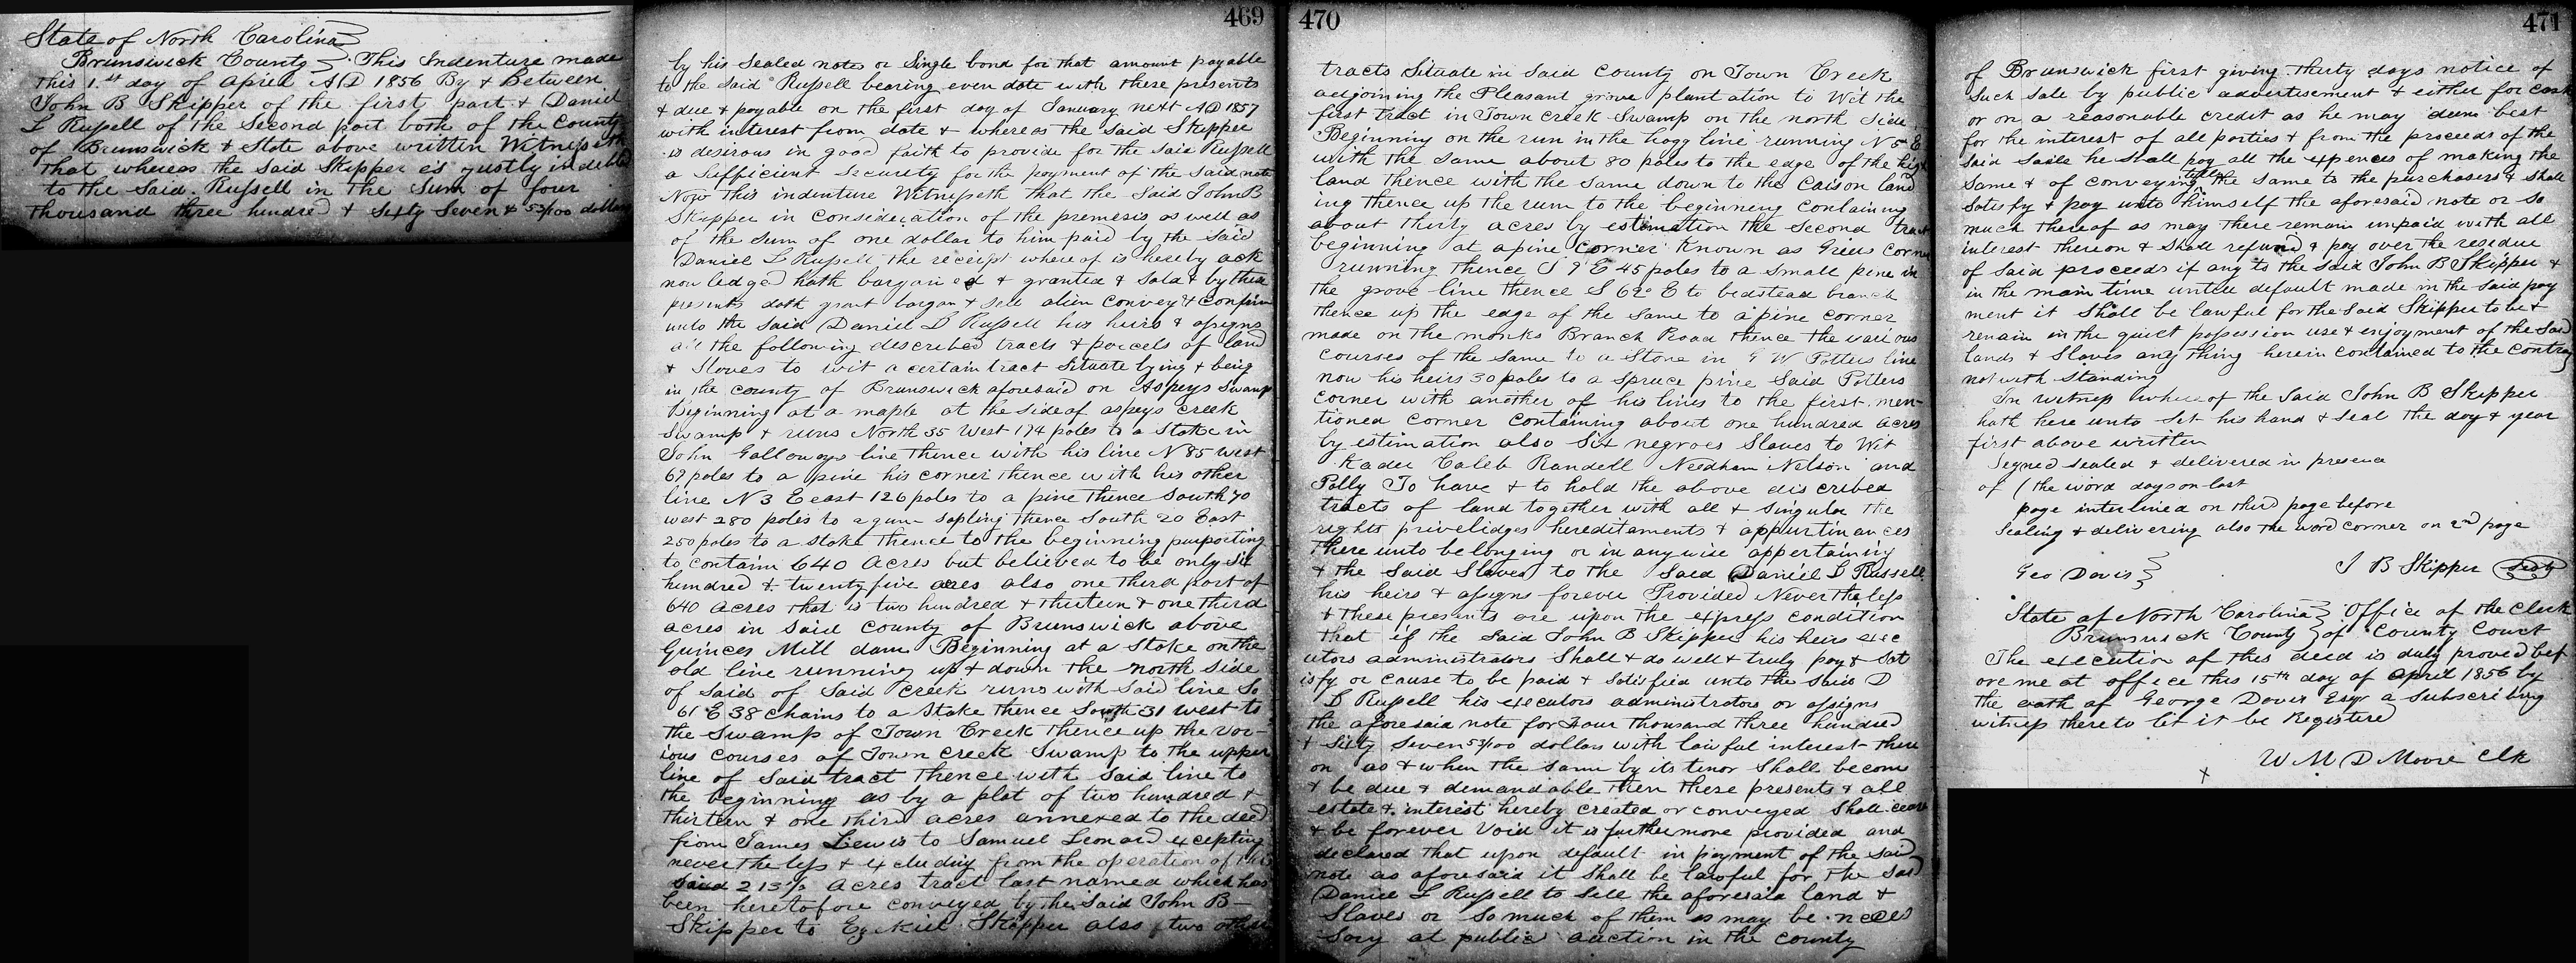 State of North Carolina
Brunswick County This Indenture made
this 1st day of April AD 1856 By & Between
John B Skipper of the first part & Daniel
L Russell of the Second part both of the County
of Brunswick & State above written Witnesseth
that whereas the said Skipper is justly indebted
to the said Russell in the sum of four
thousand three hundred & sixty seven & 53/100 dollars
469
by his sealed notes or single bond for that amount payable
to the said Russell bearing even date with these presents
& due & payable on the first day of January next AD 1857
with interest from date & whereas the said Skipper
is desirous in good faith to provide for the said Russell
a sufficient security for the payment of the said note
Now this indenture Witnesseth that the said John B
Skipper in consideration of the premesis as well as
of the sum of one dollar to him paid by the said
Daniel L Russell the receipt whereof is hereby ack
nowledged hath bargained & granted & sold & by these
presents doth grant bargan & sell alien convey & confirm
unto the said Daniel L Russell his heirs & assigns
all the following described tracts & parcels of land
& slaves to wit a certain tract situate lying & being
in the county of Brunswick aforesaid on Aspeys Swamp
Beginning at a maple at the side of aspeys creek
swamp & runs North 35 West 174 poles to a stake in
John Galloways line thence with his line N 85 west
67 poles to a pine his corner thence with his other
line N 3 E east 126 poles to a pine thence South 70
west 280 poles to a gum sapling thence South 20 East
250 poles to a stake thence to the beginning purporting
to contain 640 acres but believed to be only six
hundred & twenty five acres also one third part of
640 acres that is two hundred & thirteen & one third
acres in said county of Brunswick above
Guinces Mill dam Beginning at a stake on the
old line running up & down the north side
of said of said creek runs with said line So
61 E 38 chains to a stake thence South 31 west to
the swamp of Town Creek thence up the var-
ious courses of Town Creek Swamp to the upper
line of said tract thence with said line to
the beginning as by a plat of two hundred &
thirteen & one third acres annexed to the deed
from James Lewis to Samuel Leonard excepting
never the less & excluding from the operation of this
said 213 1/3 acres tract last named which has
been heretofore conveyed by the said John B-
Skipper to Ezekiel Skipper also two other
470
tracts situate in said county on Town Creek
adjoining the Pleasant grove plantation to Wit the
first tract in Town creek Swamp on the north side
Beginning on the run in the hogg line running N 5 E
with the same about 80 poles to the edge of the high
land thence with the same down to the Caison land
ing thence up the run to the beginning containing
about thirty acres by estimation the second tract
beginning at a pine corner known as Griers corner
running thence S 9 E 45 poles to a small pine in
the grove line thence S 62 E to bedstead branch
thence up the edge of the same to a pine corner
made on the monks Branch Road thence the various
courses of the same to a stone in G W Potters line
now his heirs 30 poles to a spruce pine said Potters
corner with another of his lines to the first men-
tioned corner containing about one hundred acres
by estimation also six negroes slaves to wit
Kader Caleb Randell Needham Nelson and
Polly To have & to hold the above discribed
tracts of land together with all & singular the
rights priveledges hereditaments & appurtinances
there unto belonging or in any wise appertaining
& the said slaves to the said Daniel L Russell
his heirs & assigns forever Provided Never the less
& these presents are upon the express condition
that if the said John B Skipper his heirs exec
utors administrators shall & do well & truly pay & sat
isfy or cause to be paid & satisfied unto the said D
L Russell his executors administrators or assigns
the aforesaid note for four thousand three hundred
& sixty seven 53/100 dollars with lawful interest there
on as & when the same by its tenor shall become
& be due & demandable then these presents & all
estate & interest hereby created or conveyed shall cease
& be forever void it is furthermore provided and
declared that upon default in payment of the said
note as aforesaid it shall be lawful for the said
Daniel L Russell to sell the aforesaid land &
slaves or so much of them as may be neces
sary at public auction in the county
471
of Brunswick first giving thirty days notice of
such sale by public advertisement & either for cash
or on a reasonable credit as he may deem best
for the interest of all parties & from the proceeds of the
said saile he shall pay all the expences of making the
same & of conveying title the same to the purchasers & shall
satisfy & pay unto himself the aforesaid note or so
much thereof as may there remain unpaid with all
interest thereon & shall refund & pay over the residue
of said proceeds if any to the said John B Skipper &
in the main time untill default made in the said pay
ment it shall be lawful for the said Skipper to be &
remain in the quiet possession use & enjoyment of the said
lands & slaves any thing herein contained to the contrary
not with standing
In witness whereof the said John B Skipper
hath here unto set his hand & seal the day & year
first above written
Signed sealed & delivered in presence
of (the word days on last
page interlined on third page before
sealing & delivering also the word corner on 2nd page
J B Skipper Seal
Geo Davis
State of North Carolina Office of the Clerk
Brunswick County of County Court
The execution of this deed is duly proved bef
ore me at office this 15th day of April 1856 by
the oath of George Davis Esqr a subscribing
witness thereto let it be Registered
W M D Moore Clk